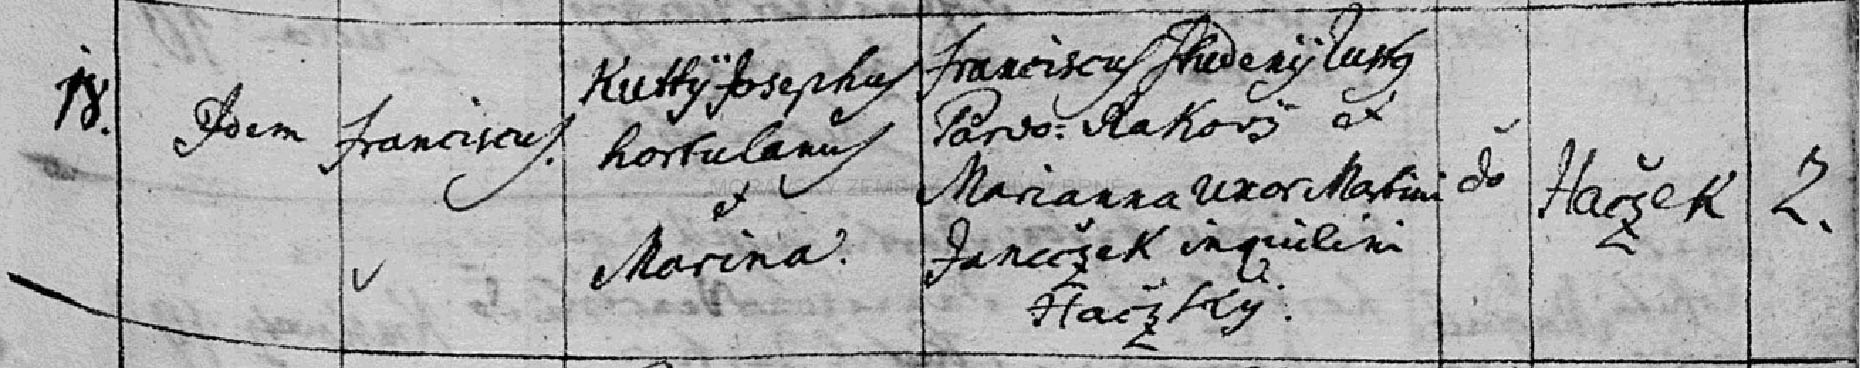 18.
Idem
Franciscus.
Kuttÿ Josephus
hortulanus
et
Marina.
Franciscus Studenÿ
Parvo: Rakovi et
Marianna Uxor Martini
Janečžek inquilini
Hačžky.
do
Hačžek
2.